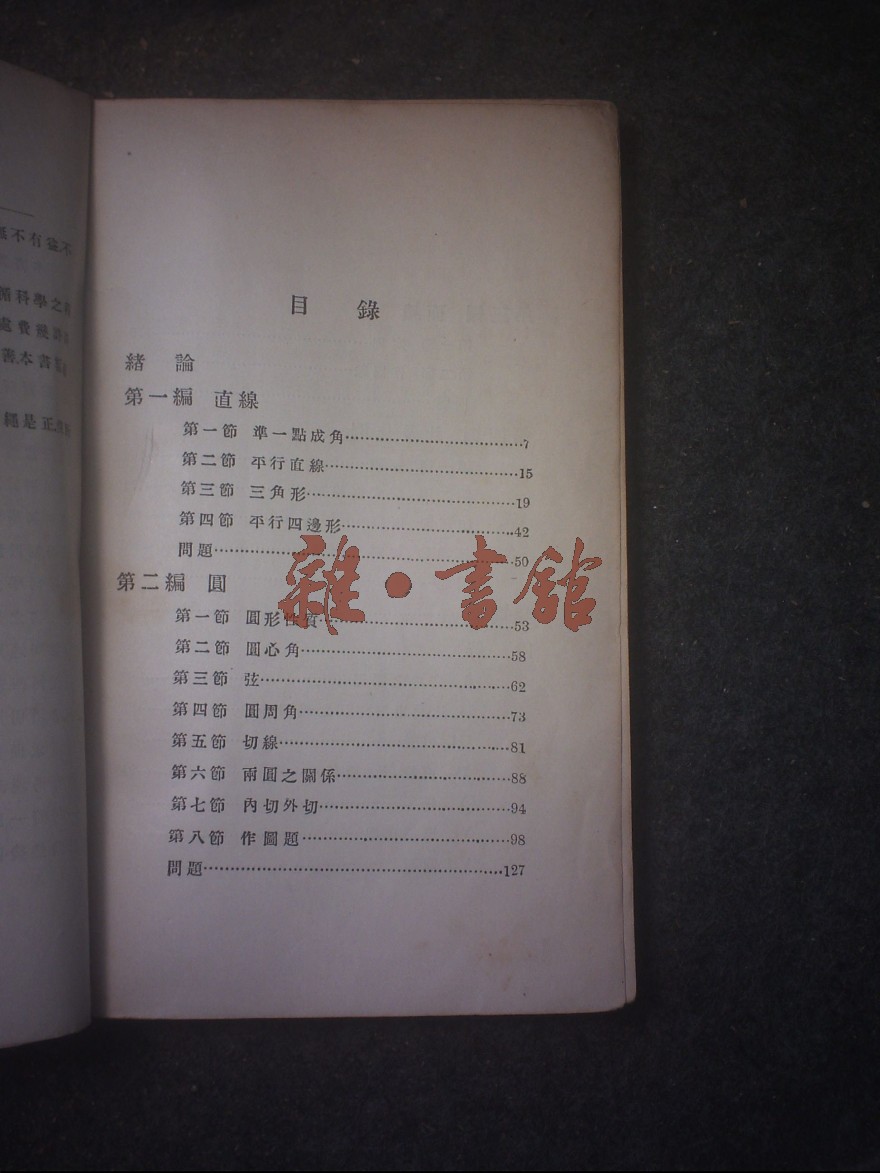 無不有益不
循科學之
處費幾許
善本書
繩是正
目錄
緒論
第一編 直線
第一節 準一點成角……7
第二節 平行直線……15
第三節 三角形……19
第四節 平行四邊形……42
問題……50
第二編 圓
第一節 圓形性質……53
第二節 圓心角……58
第三節 弦……62
第四節 圓周角……73
第五節 切線……81
第六節 兩圓之關係……88
第七節 內切外切……94
第八節 作圖題……98
問題……127
雜·書館